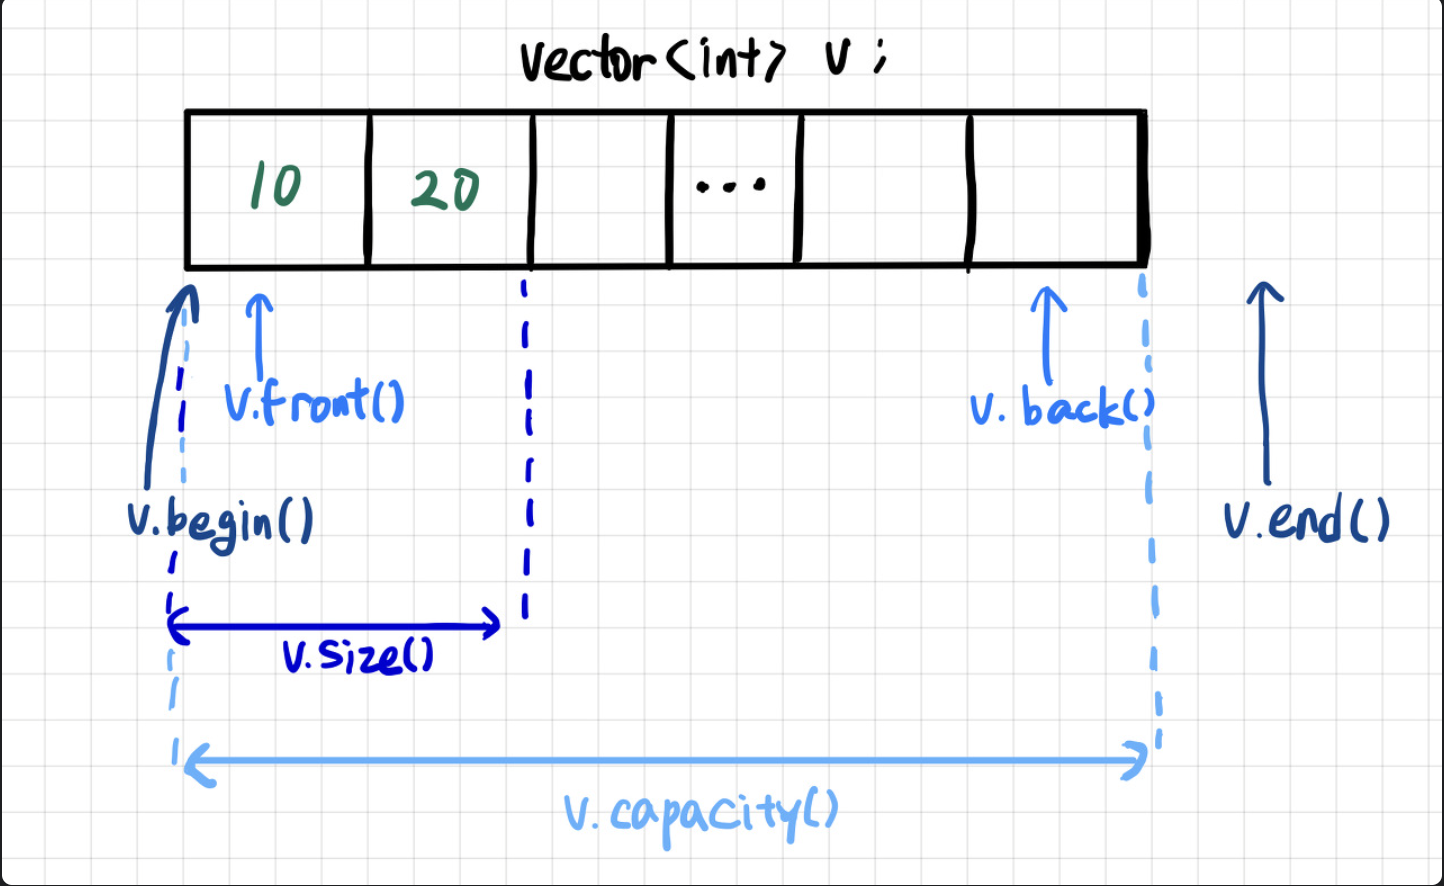 vector<int> v;
10 20 ...
v.front() v.back()
v.begin() v.end()
v.size()
v.capacity()